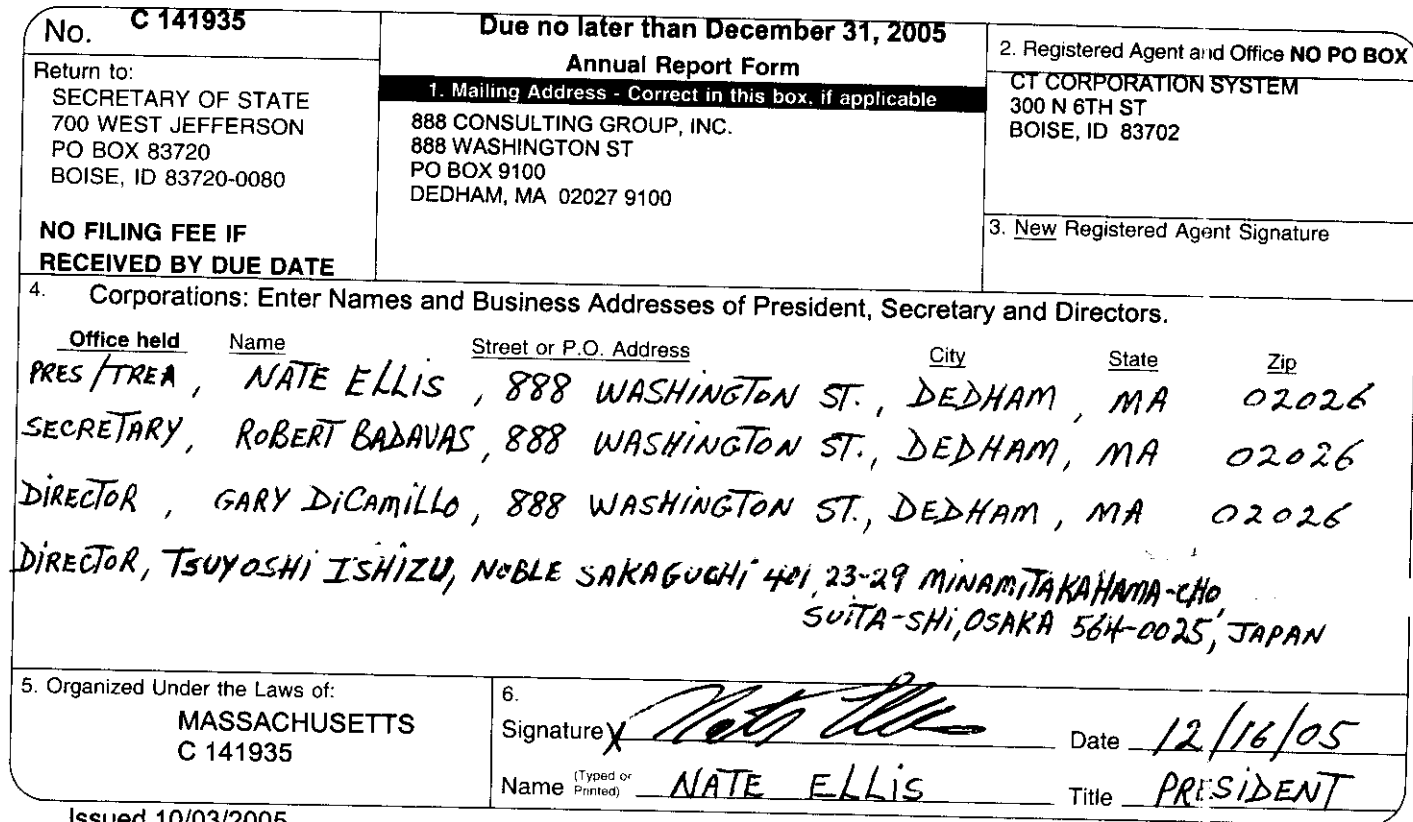 No. C 141935
Return to:
SECRETARY OF STATE
700 WEST JEFFERSON
PO BOX 83720
BOISE, ID 83720-0080
NO FILING FEE IF
RECEIVED BY DUE DATE
Due no later than December 31, 2005
Annual Report Form
1. Mailing Address - Correct in this box, if applicable
888 CONSULTING GROUP, INC.
888 WASHINGTON ST
PO BOX 9100
DEDHAM, MA 02027 9100
2. Registered Agent and Office NO PO BOX
CT CORPORATION SYSTEM
300 N 6TH ST
BOISE, ID 83702
3. New Registered Agent Signature
4. Corporations: Enter Names and Business Addresses of President, Secretary and Directors.
Office held Name Street or P.O. Address City State Zip
PRES/TREA, NATE ELLIS, 888 WASHINGTON ST., DEDHAM, MA 02026
SECRETARY, ROBERT BADAVAS, 888 WASHINGTON ST., DEDHAM, MA 02026
DIRECTOR, GARY DiCAMILLO, 888 WASHINGTON ST., DEDHAM, MA 02026
DIRECTOR, TSUYOSHI ISHIZU, NOBLE SAKAGUCHI 401, 23-29 MINAMITAKAHAMA-CHO,
SUITA-SHI, OSAKA 564-0025, JAPAN
5. Organized Under the Laws of:
MASSACHUSETTS
C 141935
6.
Signature X Nate Ellis Date 12/16/05
Name (Typed or Printed) NATE ELLIS Title PRESIDENT
Issued 10/03/2005